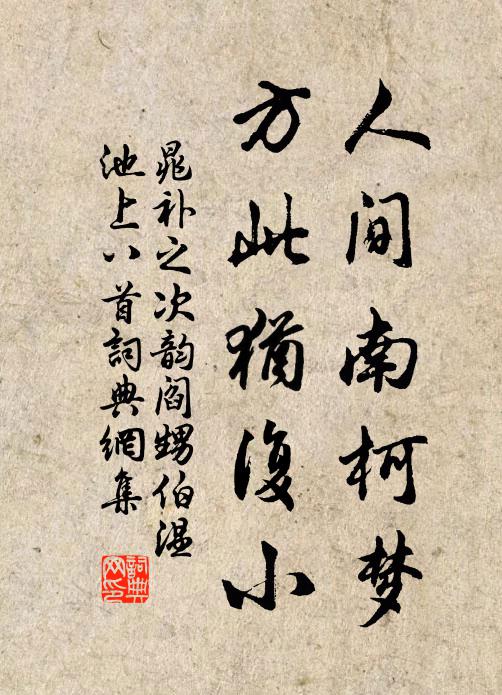 人间南柯梦
方此猶復小
晁补之次韵阎甥伯温
池上八首詞典網集
詞典網印